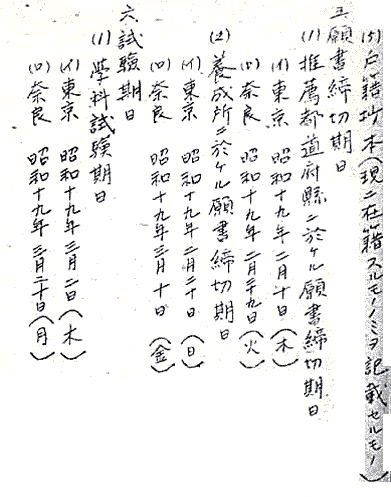 (5) 戸籍抄本(現ニ在籍スルモノノミヲ記載セルモノ)
五 願書締切期日
(1) 推薦都道府縣ニ於ケル願書締切期日
(イ) 東京 昭和十九年二月十日(木)
(ロ) 奈良 昭和十九年二月二十九日(火)
(2) 養成所ニ於ケル願書締切期日
(イ) 東京 昭和十九年二月二十日(日)
(ロ) 奈良 昭和十九年三月十日(金)
六 試驗期日
(1) 學科試驗期日
(イ) 東京 昭和十九年三月二日(木)
(ロ) 奈良 昭和十九年三月二十日(月)